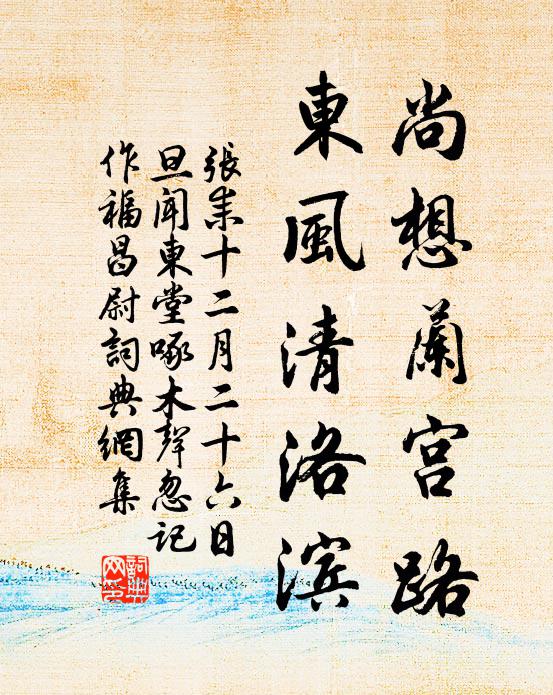 尚想蘭宫路
東風清洛滨
張耒十二月二十六日
旦聞東堂啄木聲忽記
作福昌尉詞典網集
詞典
网